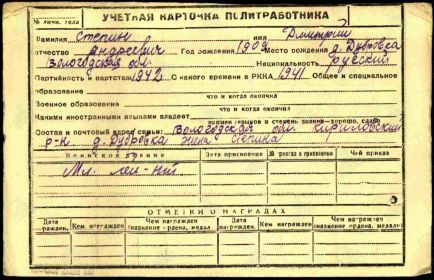 № личн. дела
УЧЕТНАЯ КАРТОЧКА ПОЛИТРАБОТНИКА
Фамилия Степин имя Дмитрий
отчество Андреевич Год рождения 1909 Место рождения д. Дубровка
Вологодская обл. Национальность русский
Партийность и партстаж 1942 С какого времени в РККА 1941 Общее и специальное
образование
что и когда окончил
Военное образование
что и когда окончил
Какими иностранными языками владеет
наимен. языков и степень знания—хорошо, слабо
Состав и почтовый адрес семьи: Вологодская обл. Кириловский
р-н д. Дубровка жена Степина
Воинское звание Дата присвоения № приказа о присвоении Чей приказ
Мл. лей-нт
ОТМЕТКИ О НАГРАДАХ
Дата награжден. Кем награжден Чем награжден (название ордена, медали) Дата награжден. Кем награжден Чем награжден (название ордена, медали)